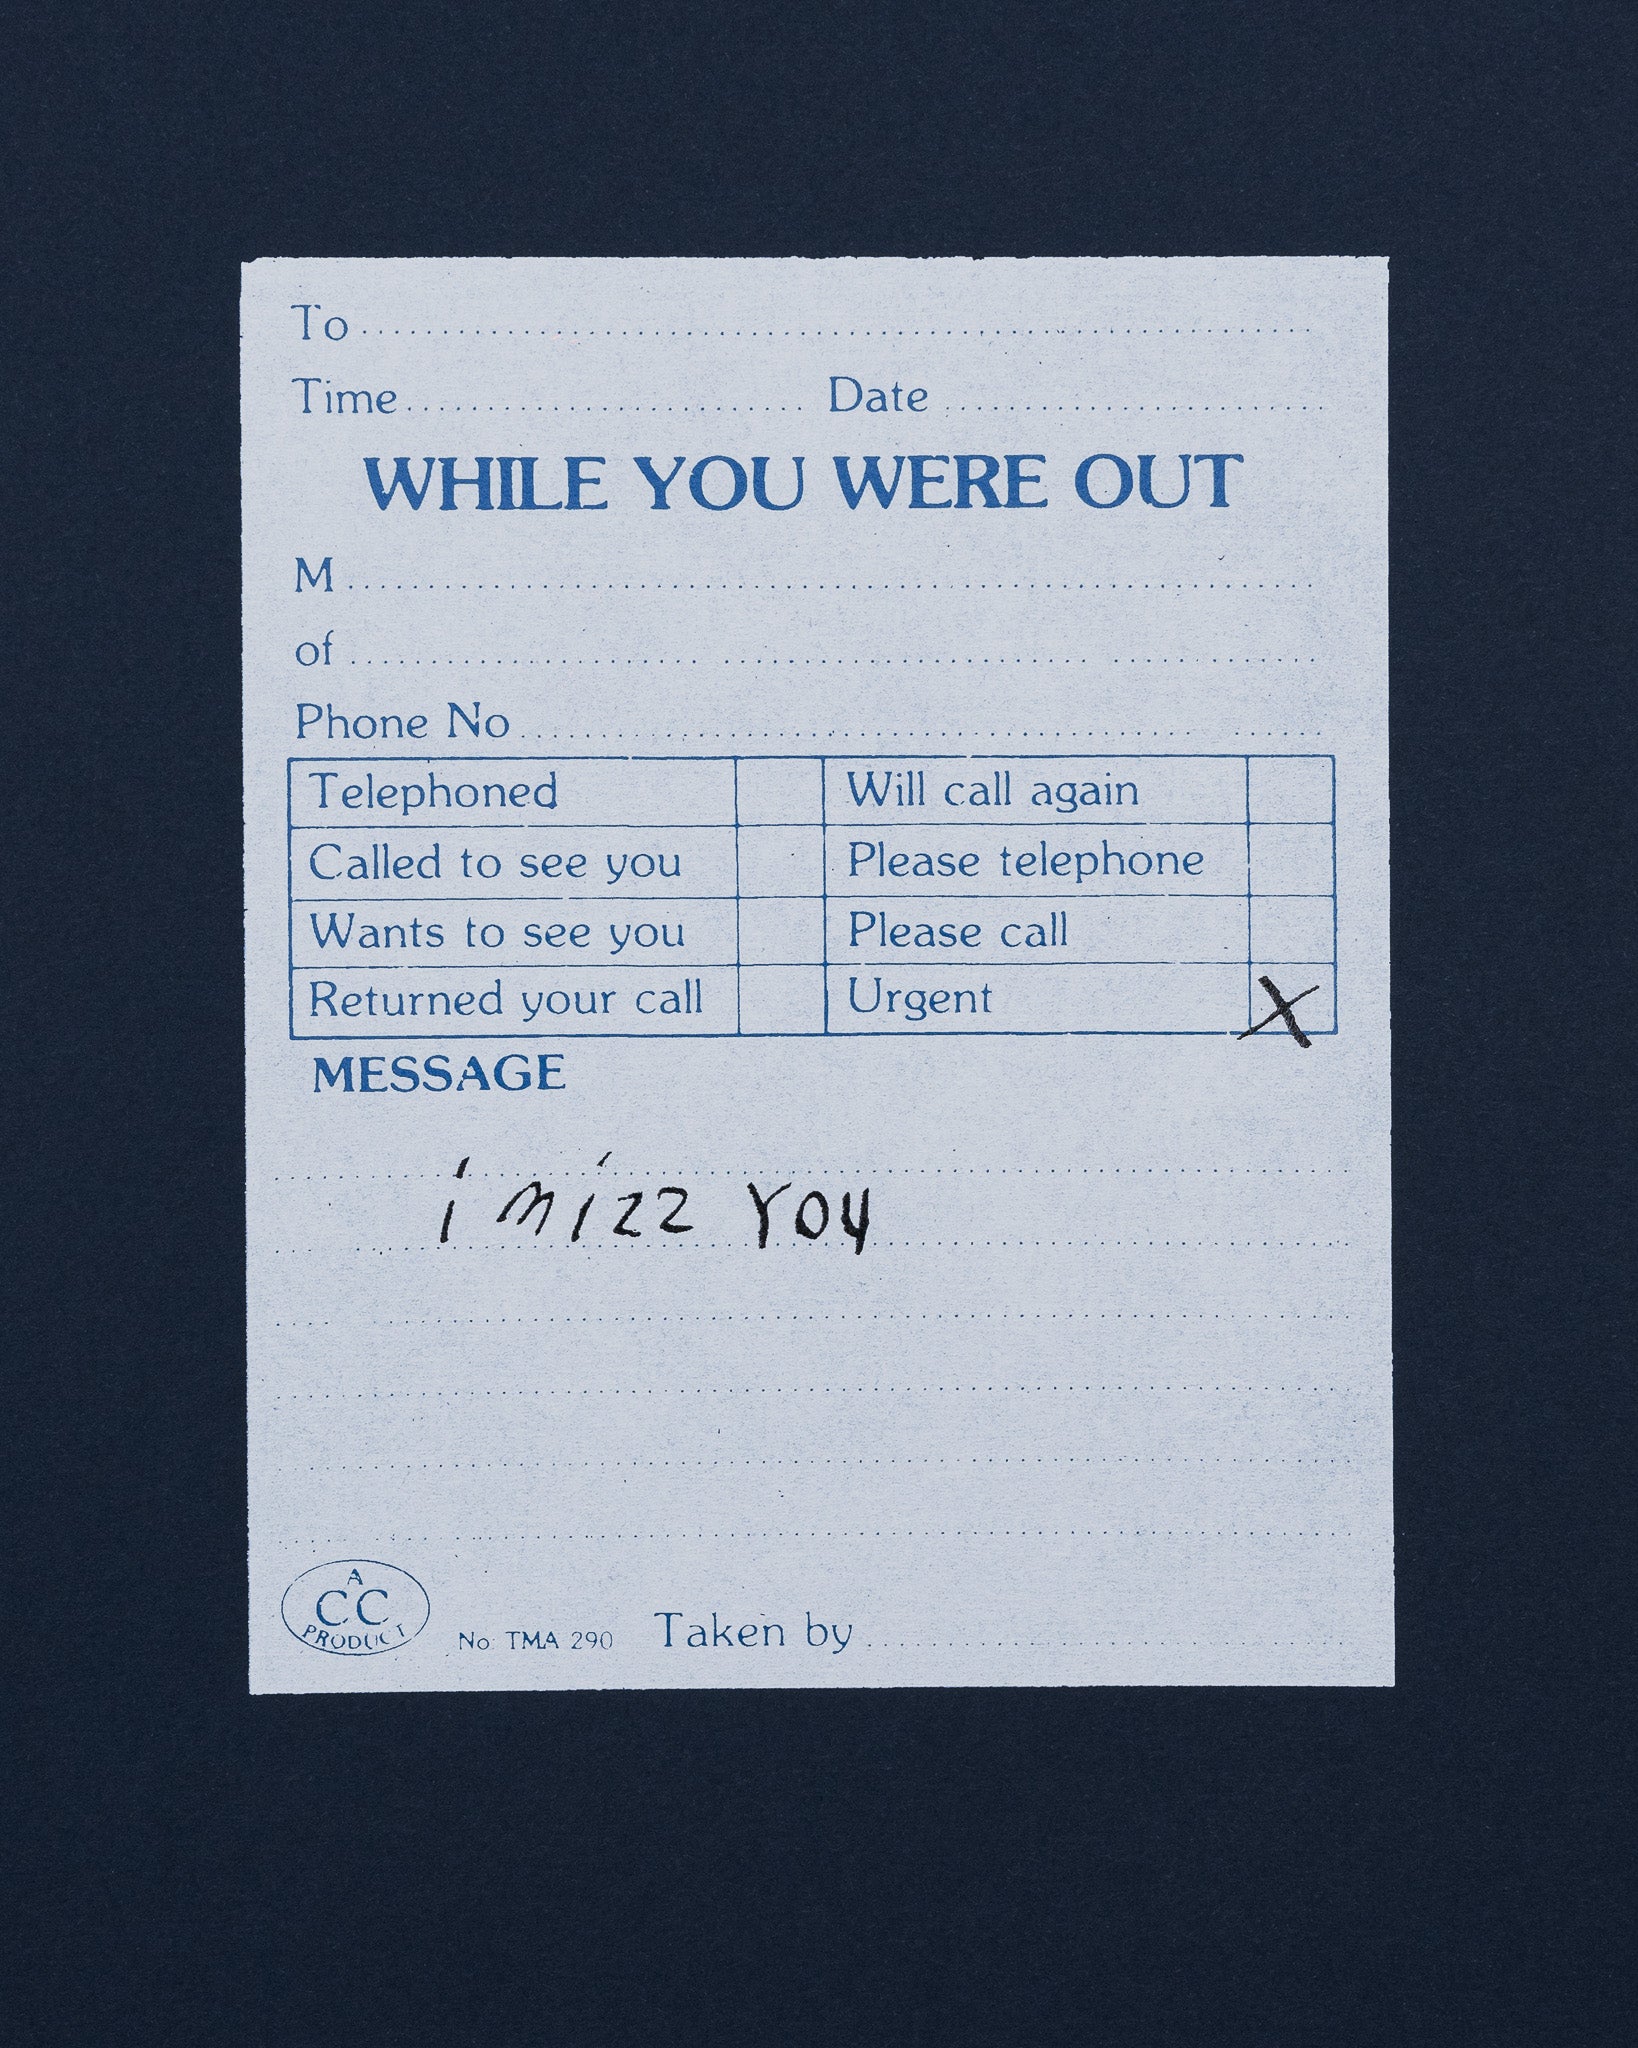 To
Time Date
WHILE YOU WERE OUT
M
of
Phone No
Telephoned Will call again
Called to see you Please telephone
Wants to see you Please call
Returned your call Urgent X
MESSAGE
i mizz YOU
A
CC
PRODUCT
No. TMA 290 Taken by